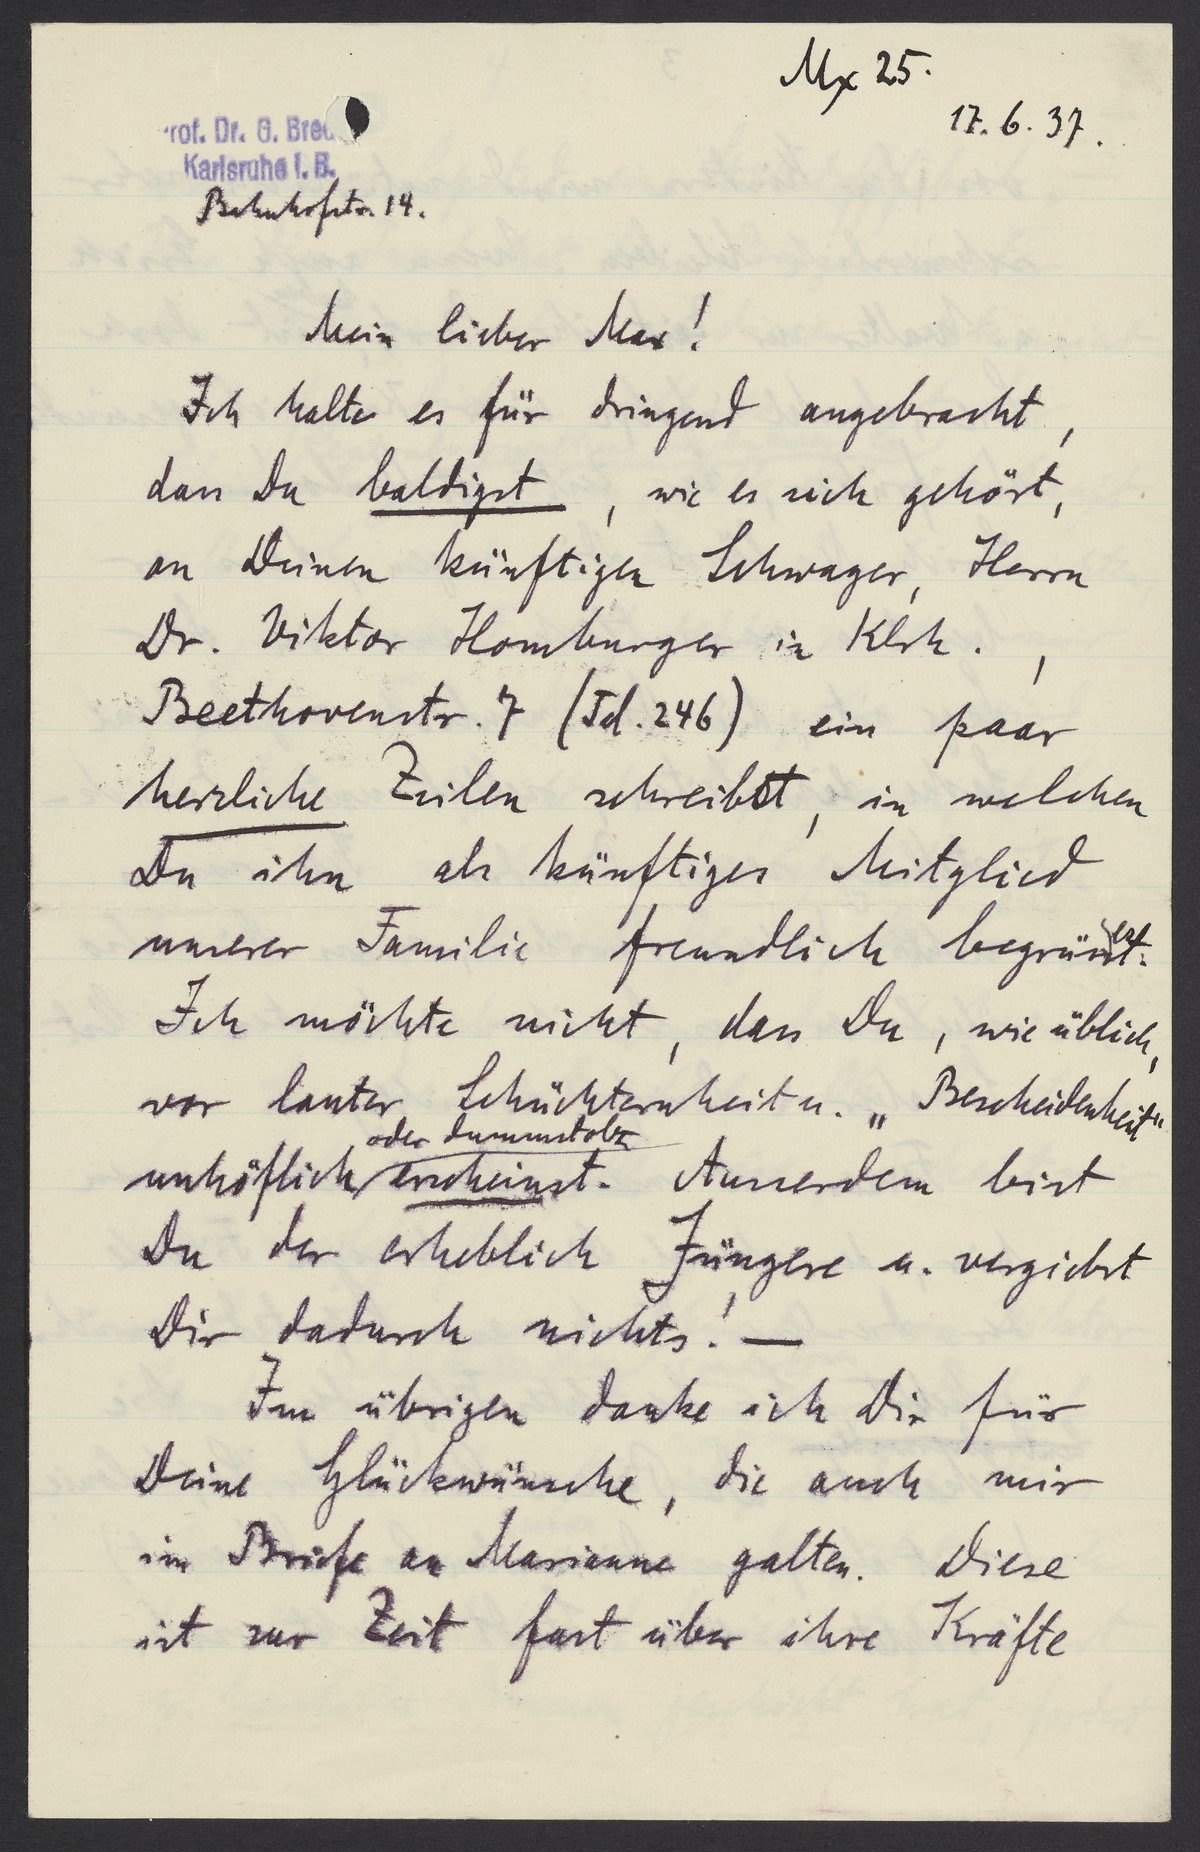 Mx 25.
17. 6. 37.
Prof. Dr. G. Bred
Karlsruhe i. B.
Bahnhofstr. 14.
Mein lieber Max!
Ich halte es für dringend angebracht,
dass Du baldigst, wie es sich gehört,
an Deinen künftigen Schwager, Herrn
Dr. Viktor Homburger in Klrh.,
Beethovenstr. 7 (Tel. 246) ein paar
herzliche Zeilen schreibst, in welchen
Du ihn als künftiges Mitglied
unserer Familie freundlich begrüssest.
Ich möchte nicht, dass Du, wie üblich,
vor lauter Schüchternheit u. „Bescheidenheit“
oder dummstolz
unhöflich erscheinst. Ausserdem bist
Du der erheblich Jüngere u. vergiebst
Dir dadurch nichts! —
Im übrigen danke ich Dir für
Deine Glückwünsche, die auch mir
im Briefe an Marianne galten. Diese
ist zur Zeit fast über ihre Kräfte